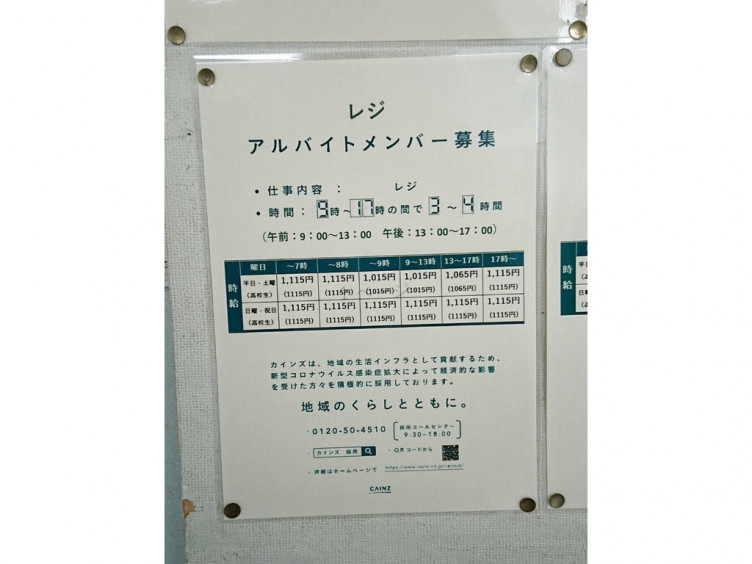 レジ
アルバイトメンバー募集
• 仕事内容 ： レジ
• 時間： 9時～17時の間で 3 ～ 4 時間
（午前：9：00～13：00 午後：13：00～17：00）
時給
曜日 ～7時 ～8時 ～9時 9～13時 13～17時 17時～
平日・土曜 1,115円 1,115円 1,015円 1,015円 1,065円 1,115円
（高校生） (1115円) (1115円) (1015円) (1015円) (1065円) (1115円)
日曜・祝日 1,115円 1,115円 1,115円 1,115円 1,115円 1,115円
（高校生） (1115円) (1115円) (1115円) (1115円) (1115円) (1115円)
カインズは、地域の生活インフラとして貢献するため、
新型コロナウイルス感染症拡大によって経済的な影響
を受けた方々を積極的に採用しております。
地域のくらしとともに。
・0120-50-4510 採用コールセンター
9:30-18:00
・カインズ 採用 ・QRコードから
・詳細はホームページで
CAINZ